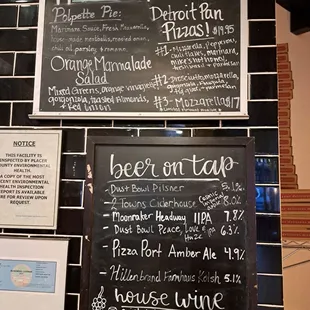 Polpette Pie:
Marinara Sauce, Fresh Mozzarella,
house-made meatballs, roasted onion,
chili oil, parsley & romano
Orange Marmalade
Salad
Mixed Greens, orange vinaigrette
gorgonzola, toasted Almonds, &
red onion
Detroit Pan
Pizzas! $19.95
#1- Mozzarella, pepperoni,
marinara,
Mike's hot honey,
fresh basil & parmesan
#2- Prosciutto, mozzarella,
gorgonzola,
#3- Mozzarella $17
NOTICE
THIS FACILITY IS
INSPECTED BY PLACER
COUNTY ENVIRONMENTAL
HEALTH.
ENVIRONMENTAL
HEALTH INSPECTION
REPORT IS AVAILABLE
HERE FOR REVIEW UPON
REQUEST
beer on tap
Dust Bowl Pilsner 5.1%
2 Towns Ciderhouse 8.0%
Cosmic
Imperial
Moonraker Headway IIPA 7.8%
Dust Bowl Peace, Love & Haze IPA 6.3%
Pizza Port Amber Ale 4.9%
Hillenbrand Farmhaus Kolsh 5.1%
house wine